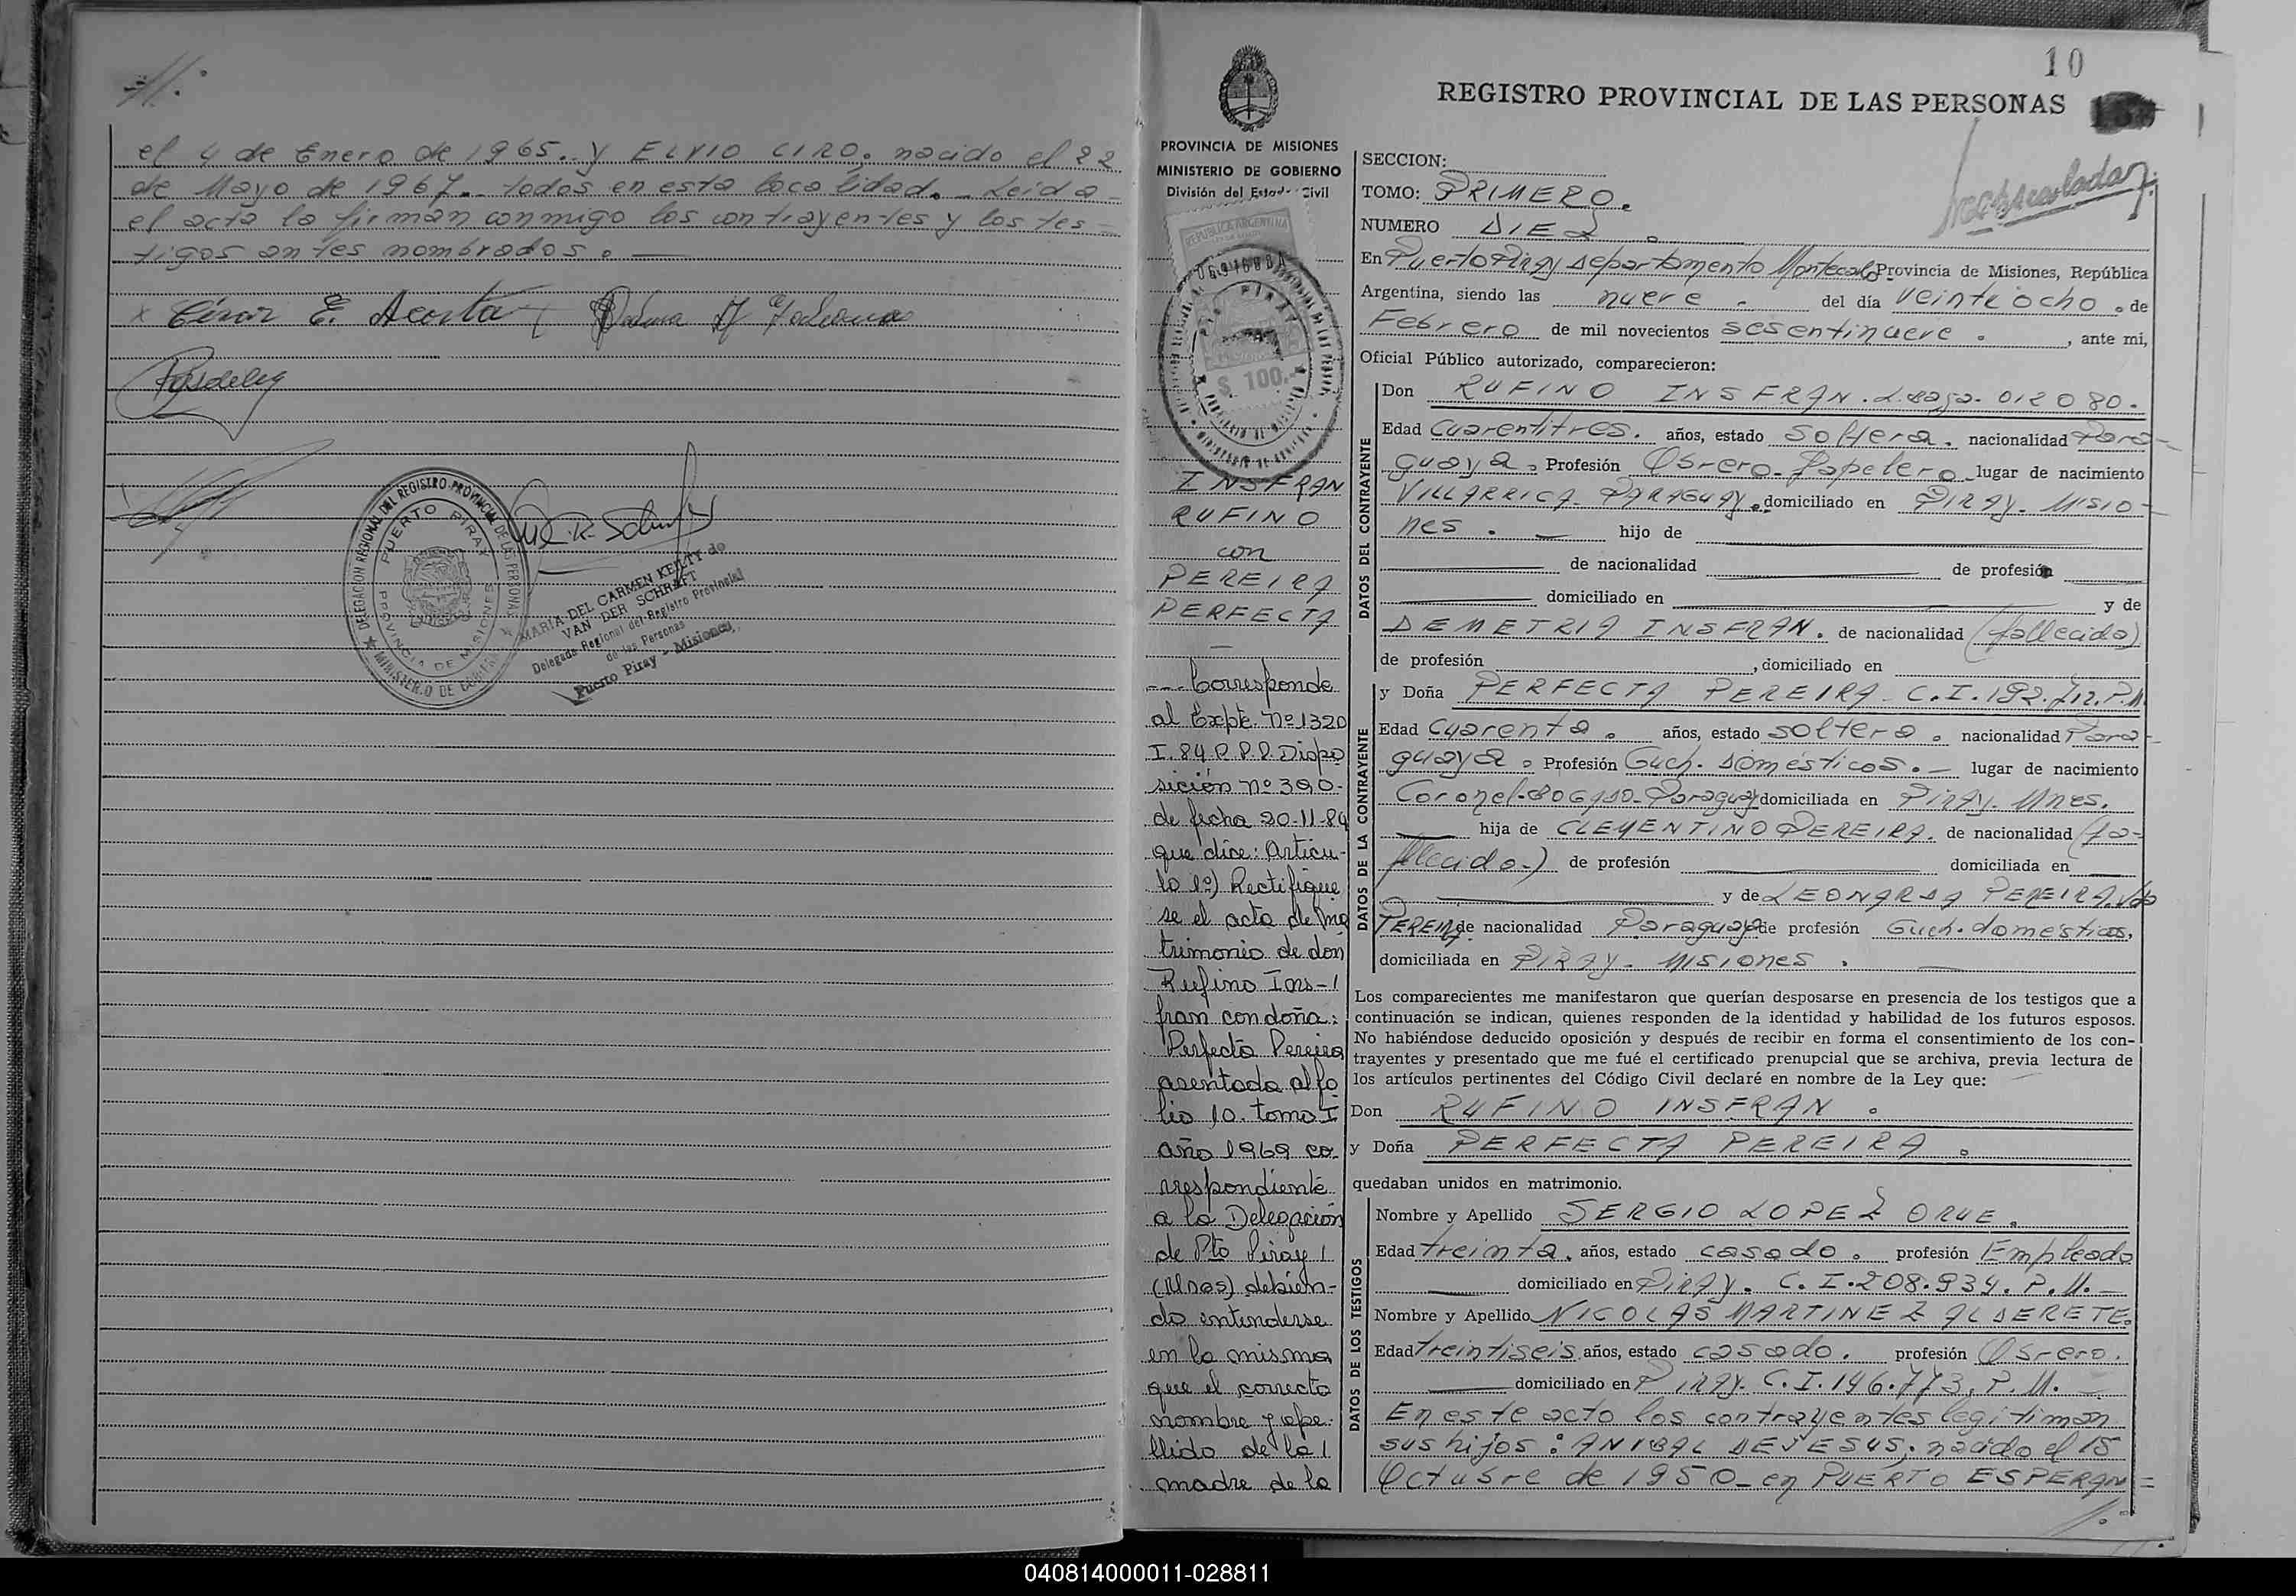 //.
el 4 de Enero de 1965. y ELVIO CIRO, nacido el 22
de Mayo de 1967._ todos en esta localidad._ Leida
el acta la firman conmigo los contrayentes y los tes-
tigos antes nombrados. _
x César E. Acosta
DELEGACION REGIONAL DEL REGISTRO PROVINCIAL DE LAS PERSONAS
PUERTO PIRAY
PROVINCIA DE MISIONES
MARIA DEL CARMEN KEILTY de
VAN DER SCHRAFT
Delegada Regional del Registro Provincial
de las Personas
Puerto Piray - Misiones
10
REGISTRO PROVINCIAL DE LAS PERSONAS
PROVINCIA DE MISIONES
MINISTERIO DE GOBIERNO
División del Estado Civil
REPUBLICA ARGENTINA
$ 100.-
INSFRAN
RUFINO
con
PEREIRA
PERFECTA
--- Corresponde
al Expte. Nº 1320
I. 84 R.P.P. Dispo
sición nº 390-
de fecha 20-11-84
que dice: Artícu-
lo 1º) Rectifique
se el acta de ma
trimonio de don
Rufino Ins-/
fran con doña:
Perfecta Pereira
asentada al fo
lio 10. tomo I
año 1969 co-
rrespondiente
a la Delegación
de Pto Piray /
(Mnes) debién-
do entenderse
en la misma
que el correcto
nombre y ape-
llido de la /
madre de la
SECCION:
TOMO: PRIMERO.
NUMERO DIEZ.
En Puerto Piray departamento Montecarlo Provincia de Misiones, República
Argentina, siendo las nueve. del día veintiocho. de
Febrero de mil novecientos sesentinueve. , ante mi,
Oficial Público autorizado, comparecieron:
DATOS DEL CONTRAYENTE
Don RUFINO INSFRAN. 012080.
Edad Cuarentitres. años, estado Soltero. nacionalidad Para-
guaya. Profesión Obrero-Papelero lugar de nacimiento
VILLARRICA-PARAGUAY. domiciliado en PIRAY-MISIO-
nes. _ hijo de
de nacionalidad de profesión
domiciliado en y de
DEMETRIA INSFRAN. de nacionalidad (fallecida)
de profesión , domiciliado en
DATOS DE LA CONTRAYENTE
y Doña PERFECTA PEREIRA C.I. 192.712. P.M.
Edad Cuarenta. años, estado soltera. nacionalidad Para-
guaya. Profesión Queh. Domésticos. _ lugar de nacimiento
Coronel-BOGADO-Paraguay domiciliada en Piray. Mnes.
hija de CLEMENTINO PEREIRA. de nacionalidad (fa-
llecido.) de profesión domiciliada en
y de LEONARDA PEREIRA. Vda
PEREIRA. de nacionalidad Paraguaya de profesión Queh. domésticos,
domiciliada en PIRAY- MISIONES.
Los comparecientes me manifestaron que querían desposarse en presencia de los testigos que a
continuación se indican, quienes responden de la identidad y habilidad de los futuros esposos.
No habiéndose deducido oposición y después de recibir en forma el consentimiento de los con-
trayentes y presentado que me fué el certificado prenupcial que se archiva, previa lectura de
los artículos pertinentes del Código Civil declaré en nombre de la Ley que:
Don RUFINO INSFRAN.
y Doña PERFECTA PEREIRA.
quedaban unidos en matrimonio.
DATOS DE LOS TESTIGOS
Nombre y Apellido SERGIO LOPEZ ORUE.
Edad treinta. años, estado casado. profesión Empleado
domiciliado en Piray. C.I. 208.934. P.M. _
Nombre y Apellido NICOLAS MARTINEZ ALDERETE.
Edad treintiseis años, estado casado. profesión Obrero.
domiciliado en Piray. C.I. 146.773. P.M.
En este acto los contrayentes legitiman
sus hijos: ANIBAL DEJESUS; nacido el 15
Octubre de 1950_ en PUERTO ESPERAN=
//.
040814000011-028811